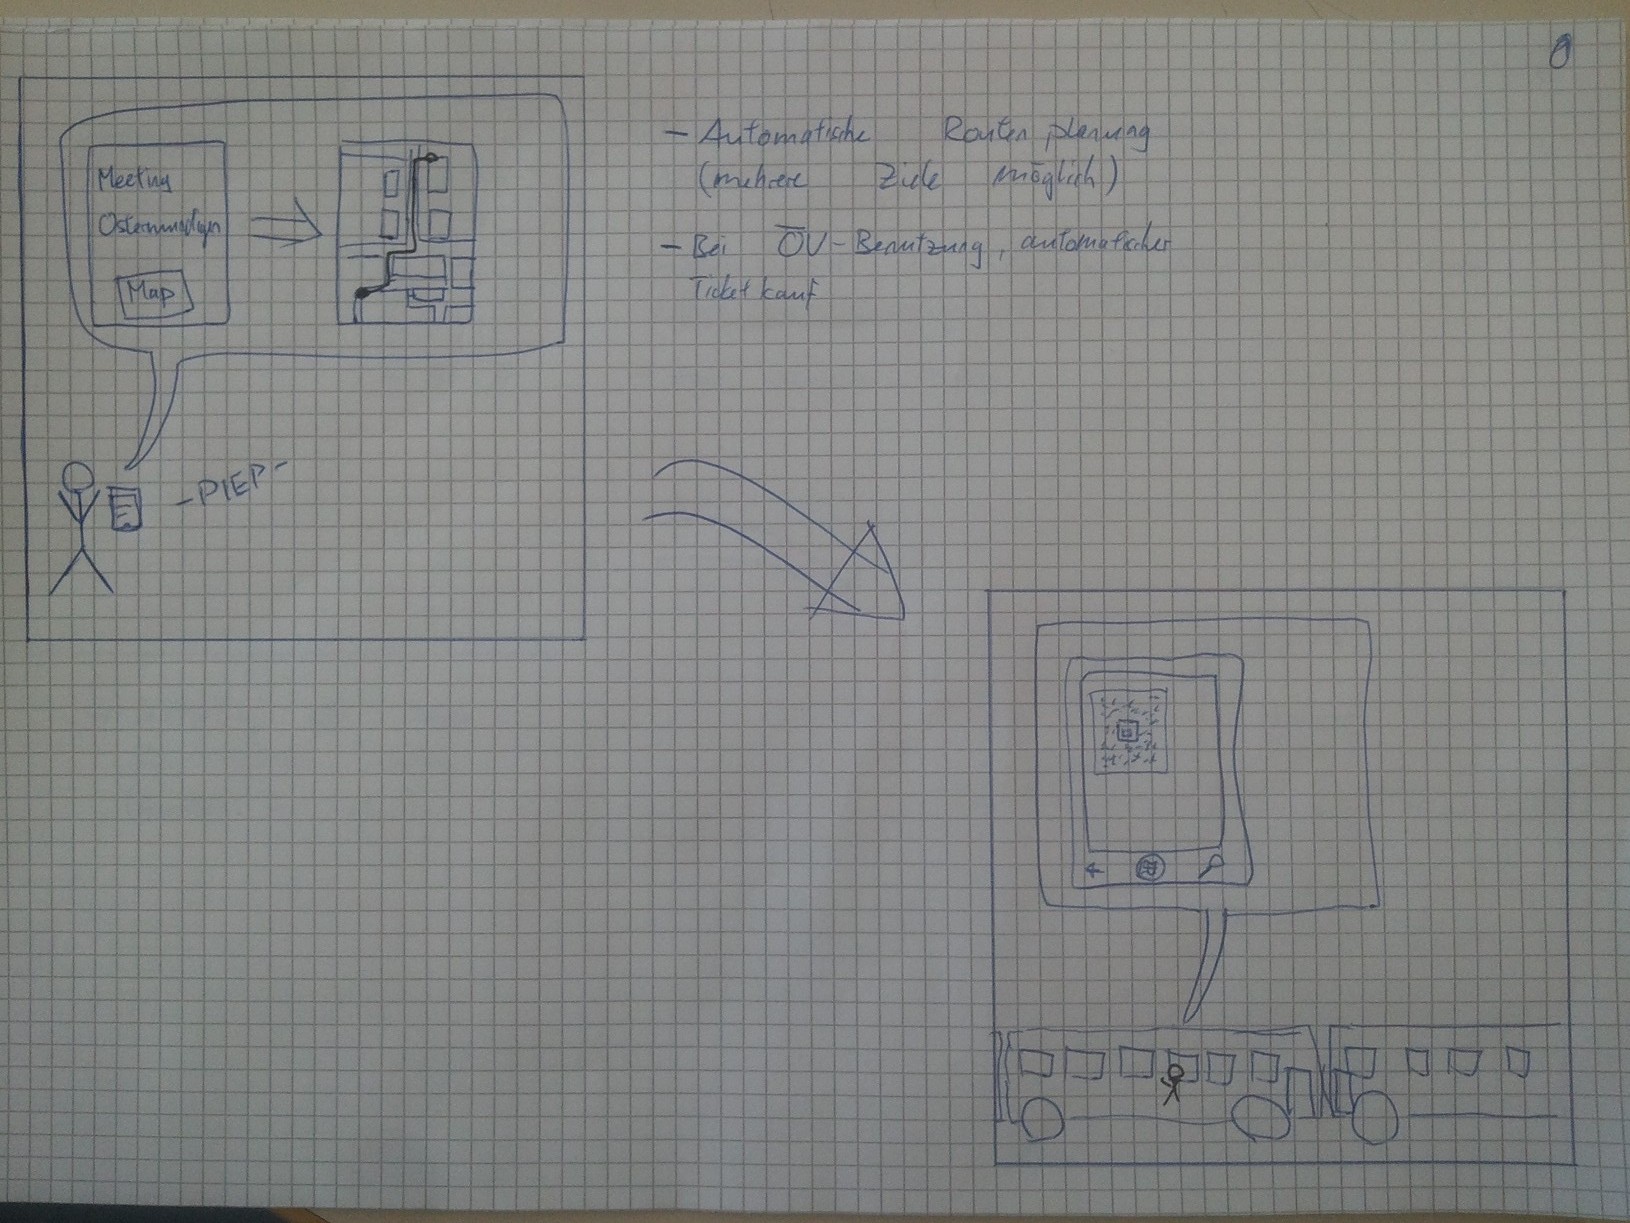 Meeting
Ostermundigen
Map
-PIEP-
- Automatische Routenplanung
(mehrere Ziele möglich)
- Bei ÖV-Benutzung, automatischer
Ticketkauf